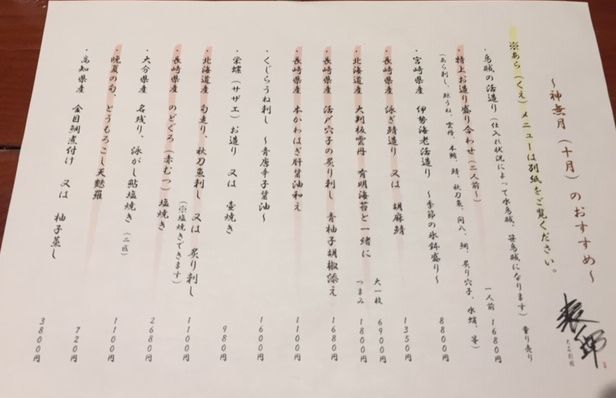 ～神無月（十月）のおすすめ～
※あら（くえ）メニューは別紙をご覧ください。
・烏賊の活造り（仕入れ状況によって水烏賊、笹烏賊になります）量り売り
一人前 1680円
・特上お造り盛り合わせ（二人前～）
（あら刺し、鮪うね、雲丹、本鮪、鯖、秋刀魚、間八、鯛、炙り穴子、水蛸、等）
8800円
・宮崎県産 伊勢海老活造り ～季節の氷鉢盛り～
・長崎県産 泳ぎ鯖造り 又は 胡麻鯖
1350円
・北海道産 大判板雲丹 有明海苔と一緒に
大一枚 6900円
つまみ 1800円
・長崎県産 活〆穴子の炙り刺し 青柚子胡椒添え
1680円
・長崎県産 本かわはぎ肝醤油和え
1100円
・くじらうね刺し ～青唐辛子醤油～
1600円
・栄螺（サザエ）お造り 又は 壷焼き
980円
・北海道産 旬走り、秋刀魚刺し 又は 炙り刺し
（※塩焼きできます）
1100円
・長崎県産 のどぐろ（赤むつ）塩焼き
2680円
・大分県産 名残り、泳がし鮎塩焼き（二匹）
1100円
・晩夏の旬、とうもろこし天麩羅
720円
・高知県産 金目鯛煮付け 又は 柚子蒸し
3800円